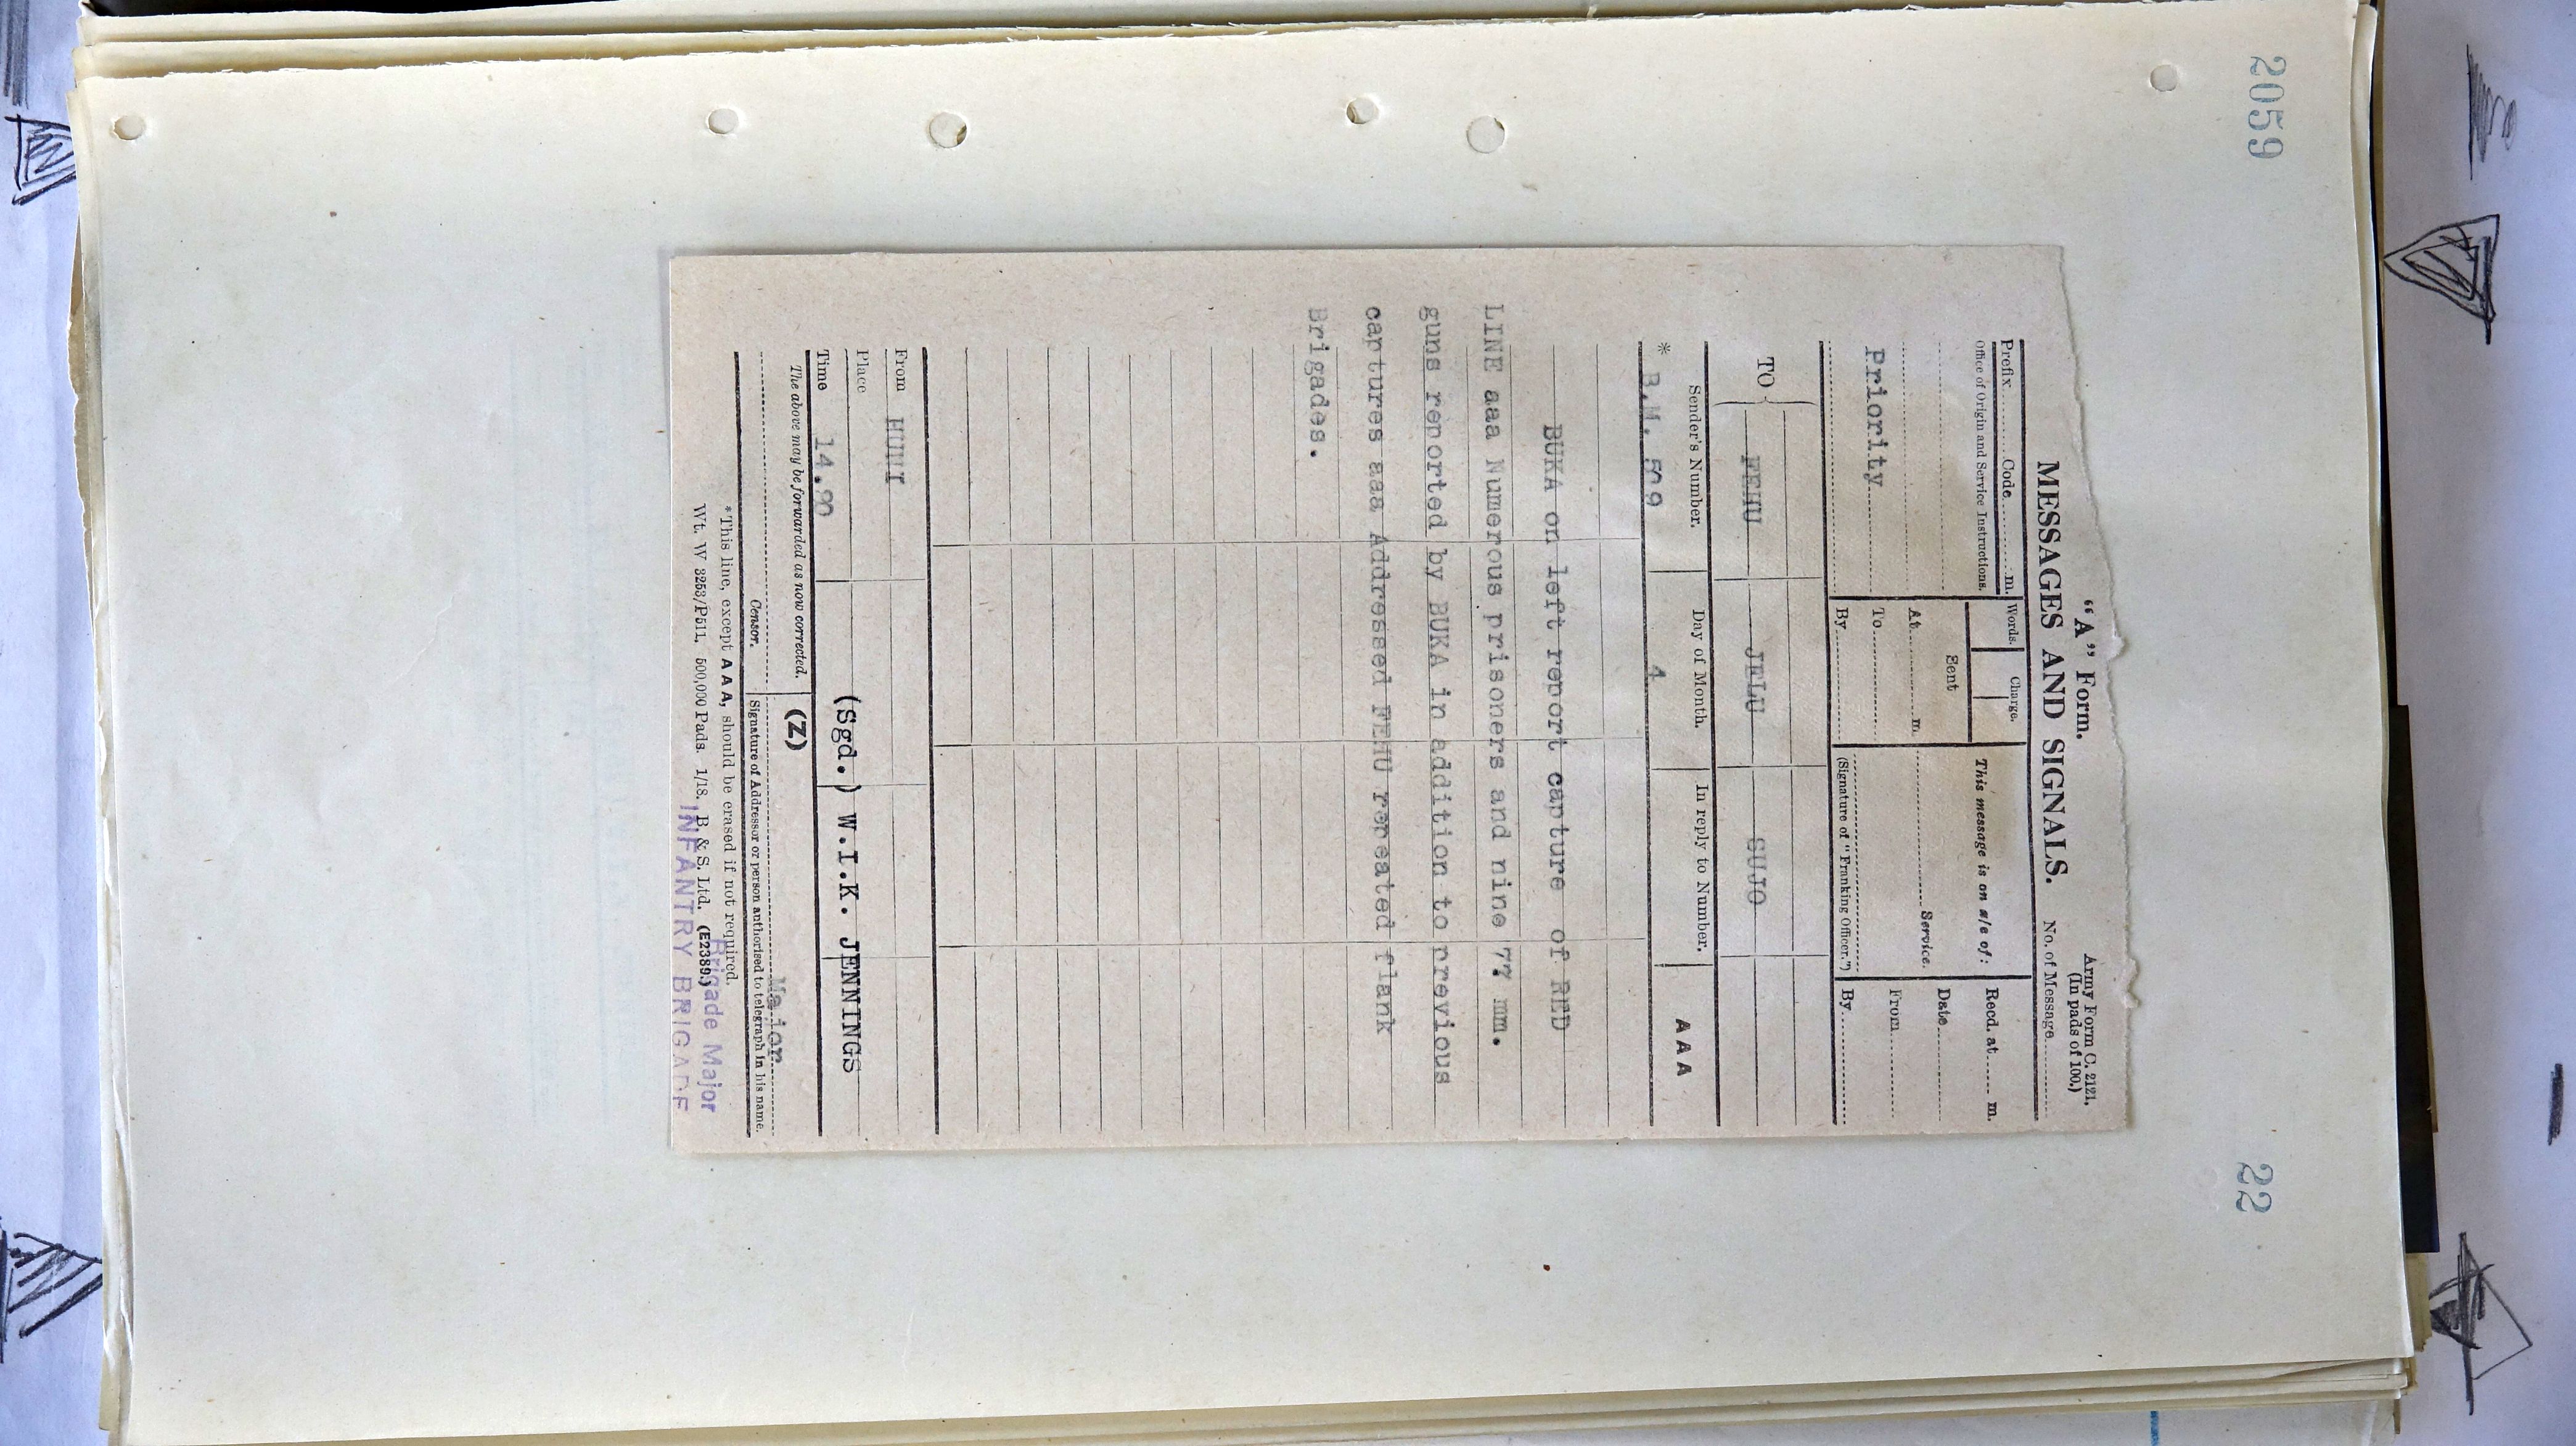 2059
22
"A" Form.
Army Form C. 2121.
(In pads of 100.)
MESSAGES AND SIGNALS.
No. of Message
Prefix Code m.
Words. Charge.
This message is on a/c of:
Recd. at m.
Office of Origin and Service Instructions.
Sent
Date
At m.
Service.
From
Priority
To
By
(Signature of "Franking Officer.")
By
TO
FEHU JELU SUJO
Sender's Number. Day of Month. In reply to Number. A A A
* B.M. 509 4
BUKA on left report capture of RED
LINE aaa Numerous prisoners and nine 77 mm.
guns reported by BUKA in addition to previous
captures aaa Addressed FEHU repeated flank
Brigades.
From
Place
Time
(Sgd.) W.I.K. JENNINGS
The above may be forwarded as now corrected. (Z)
Major.
Censor. Signature of Addressor or person authorised to telegraph in his name.
*This line, except A A A, should be erased if not required.
Wt. W 3253/P511. 500,000 Pads. 1/18. B & S. Ltd. (E2389.)
Brigade Major
INFANTRY BRIGADE